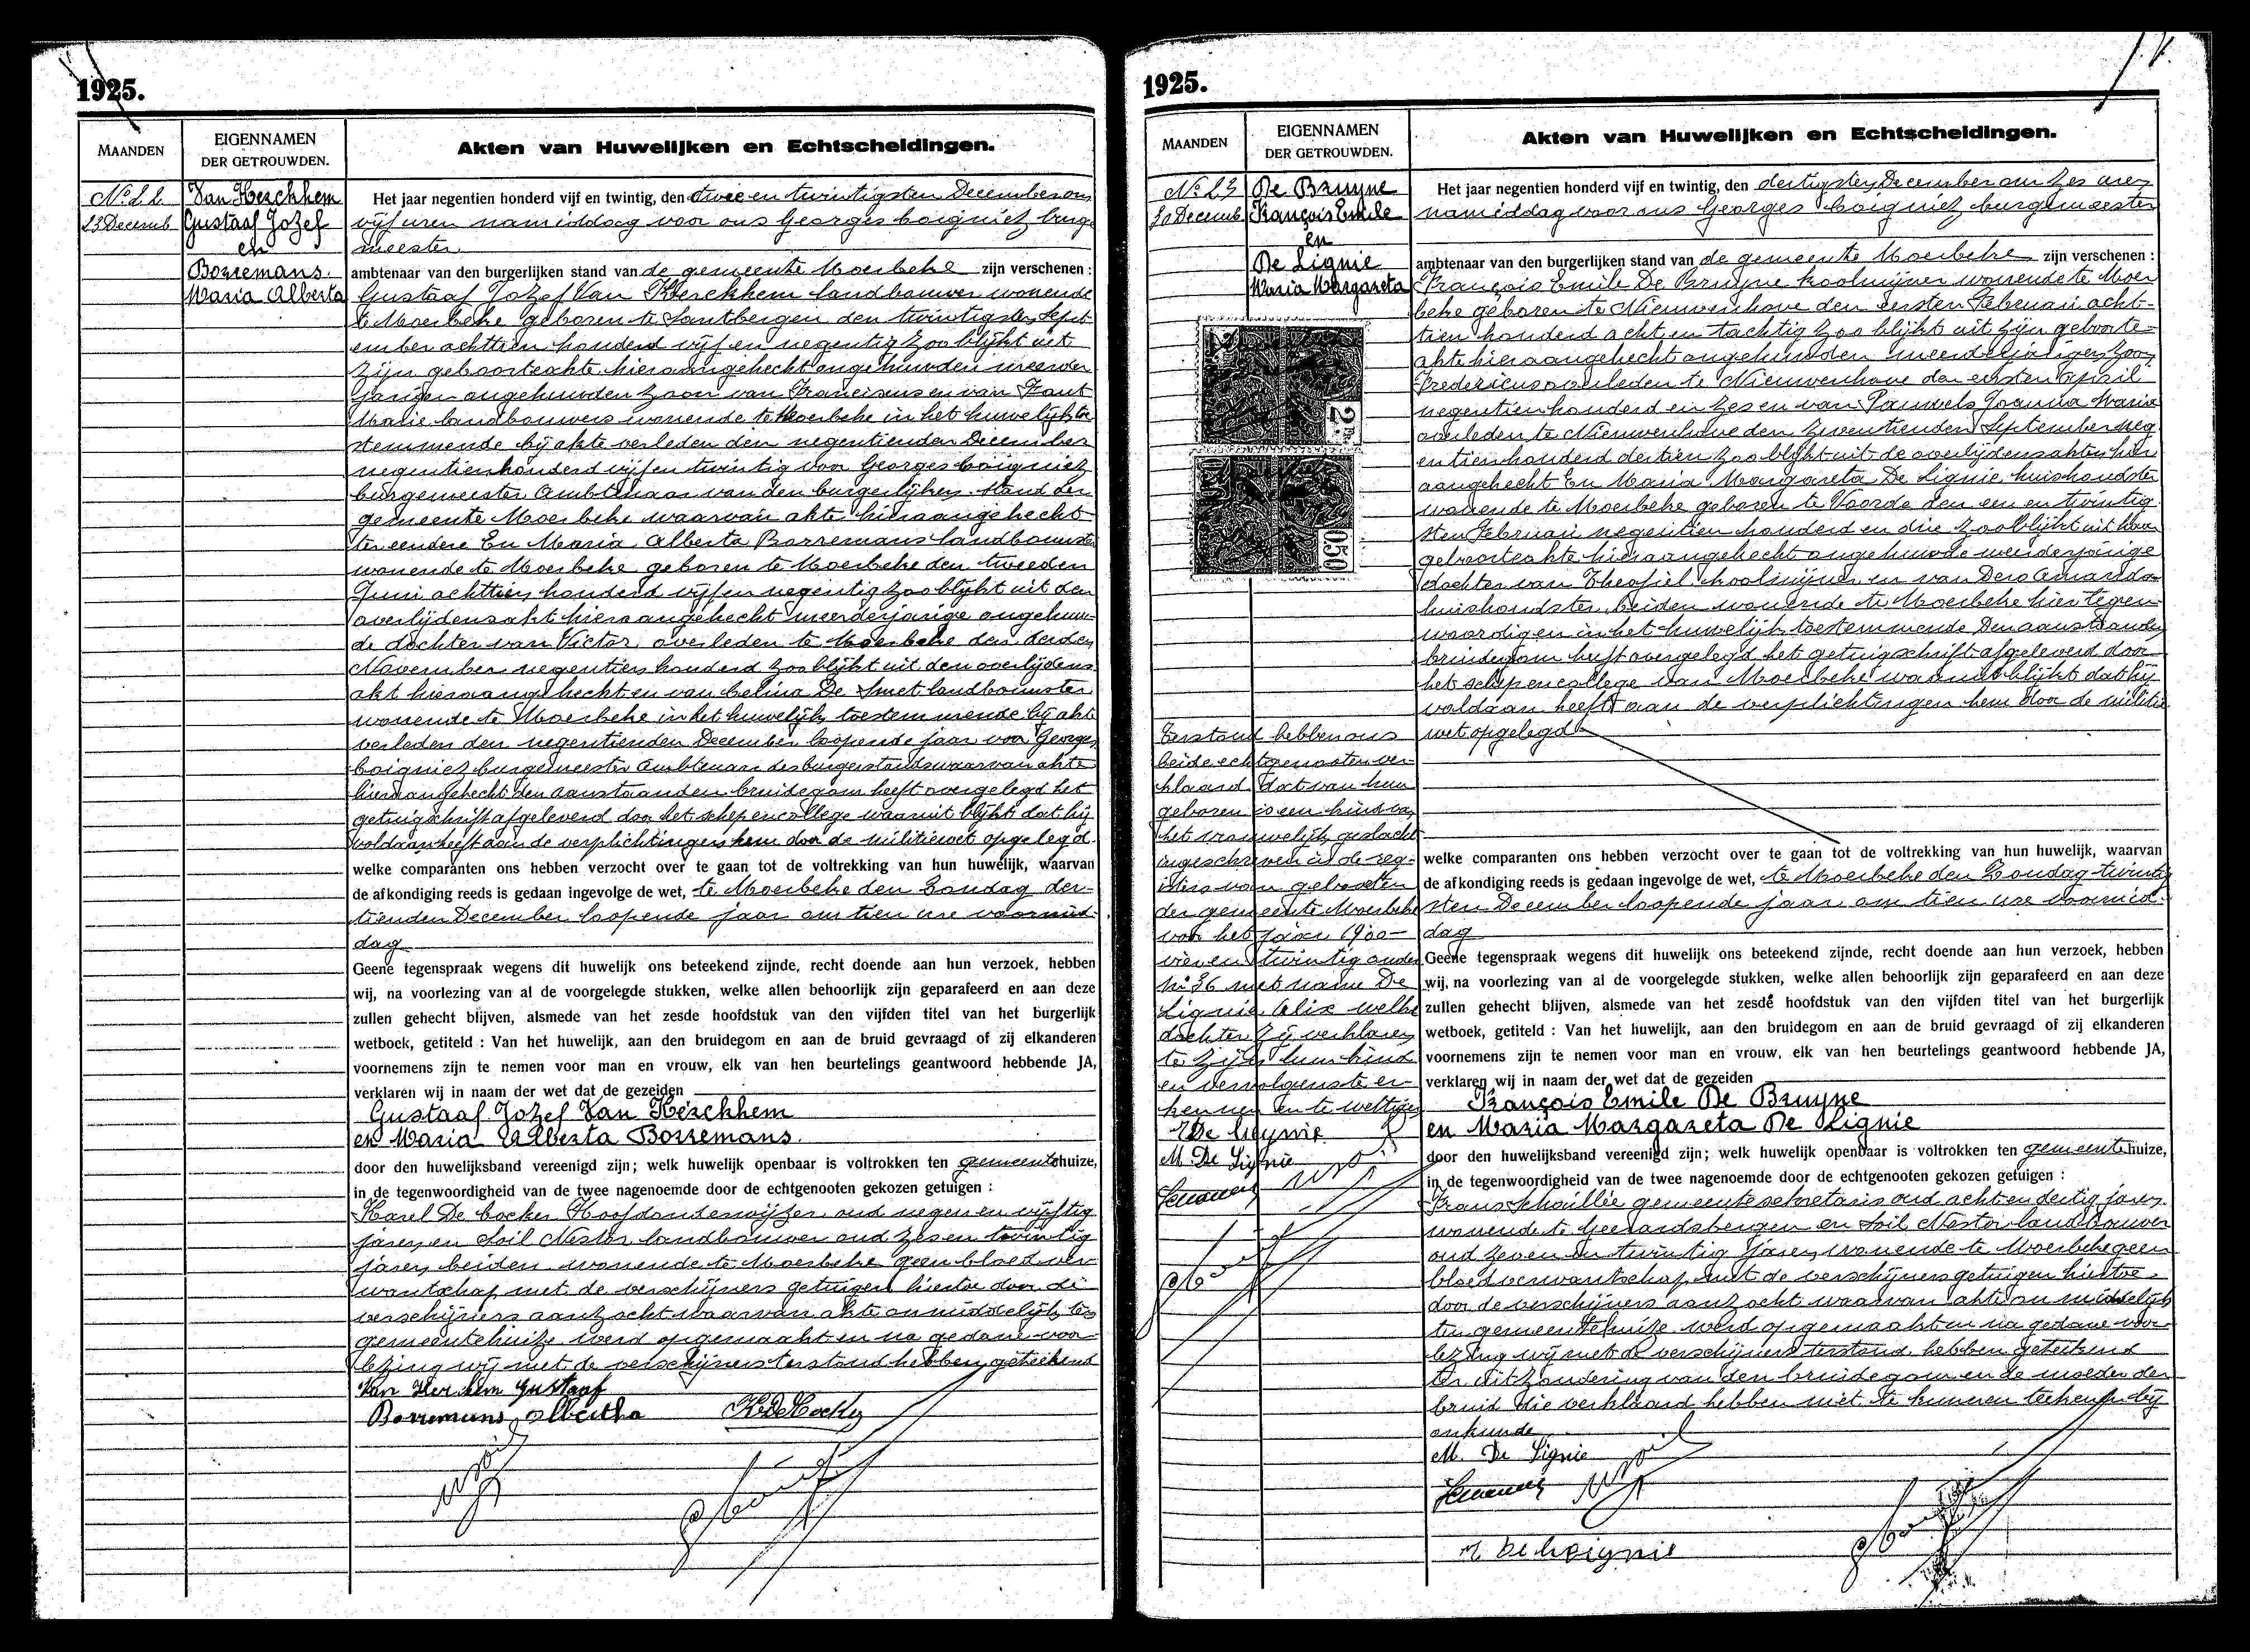 1925.
MAANDEN
EIGENNAMEN
DER GETROUWDEN.
Akten van Huwelijken en Echtscheidingen.
23 Decemb
Van Herckhem
Gustaaf Jozef
en
Borremans.
Maria Alberta
Het jaar negentien honderd vijf en twintig, den twee en twintigsten December om
vijf uren namiddag voor ons Georges Coigniez burge
meester
ambtenaar van den burgerlijken stand van de gemeente Moerbeke zijn verschenen :
Gustaaf Jozef Van Herckhem landbouwer wonende
te Moerbeke geboren te Santbergen den twintigsten Sept
ember achttien honderd vijf en negentig zoo blijkt uit
zijn geboorteakte hieraangehecht ongehuwden meerder
jarigen ongehuwden zoon van Franciscus en van Fant
Marie landbouwers wonende te Moerbeke in het huwelijk toe
stemmende bij akte verleden den negentienden December
negentien honderd vijf en twintig voor Georges Coigniez
burgemeester Ambtenaar van den burgerlijken stand der
gemeente Moerbeke waarvan akte hieraangehecht
ter eendere En Maria Alberta Borremans landbouwster
wonende te Moerbeke geboren te Moerbeke den tweeden
Juni achttien honderd vijf en negentig zoo blijkt uit den
overlijdensakt hieraangehecht meerderjarige ongehuw-
de dochter van Victor overleden te Moerbeke den derden
November negentien honderd zoo blijkt uit den overlijdens
akt hieraangehecht en van Celina De Smet landbouwster
wonende te Moerbeke in het huwelijk toestemmende bij akt
verleden den negentienden December loopende jaar voor Georges
Coigniez burgemeester Ambtenaar des burgerstands waarvan akte
hieraangehecht den aanstaanden bruidegom heeft overgelegd het
getuigschrift afgeleverd door het schepencollege waaruit blijkt dat hij
voldaan heeft aan de verplichtingen hem door de militiewet opgelegd.
welke comparanten ons hebben verzocht over te gaan tot de voltrekking van hun huwelijk, waarvan
de afkondiging reeds is gedaan ingevolge de wet, te Moerbeke den Zondag der-
tienden December loopende jaar om tien ure voormid-
dag
Geene tegenspraak wegens dit huwelijk ons beteekend zijnde, recht doende aan hun verzoek, hebben
wij, na voorlezing van al de voorgelegde stukken, welke allen behoorlijk zijn geparafeerd en aan deze
zullen gehecht blijven, alsmede van het zesde hoofdstuk van den vijfden titel van het burgerlijk
wetboek, getiteld : Van het huwelijk, aan den bruidegom en aan de bruid gevraagd of zij elkanderen
voornemens zijn te nemen voor man en vrouw, elk van hen beurtelings geantwoord hebbende JA,
verklaren wij in naam der wet dat de gezeiden
Gustaaf Jozef Van Herckhem
en Maria Alberta Borremans.
door den huwelijksband vereenigd zijn; welk huwelijk openbaar is voltrokken ten gemeentehuize,
in de tegenwoordigheid van de twee nagenoemde door de echtgenooten gekozen getuigen :
Karel De Cocker Hoofdonderwijzer oud negen en vijftig
jaren en Soil Nestor landbouwer oud zes en twintig
jaren beiden wonende te Moerbeke geen bloedver-
wantschap met de verschijners getuigen hiertoe door de
verschijners aanzocht waarvan akte onmiddelijk ten
gemeentehuize werd opgemaakt en na gedane voor-
lezing wij met de verschijners terstond hebben geteekend
Van Herckem Gustaaf
Borremans Albertha
1925.
MAANDEN
EIGENNAMEN
DER GETROUWDEN.
Akten van Huwelijken en Echtscheidingen.
No 23
30 Decemb
De Bruyne
François Emile
en
De Lignie
Maria Margareta
Het jaar negentien honderd vijf en twintig, den dertigsten December om zes uren
namiddag voor ons Georges Coigniez burgemeester
ambtenaar van den burgerlijken stand van de gemeente Moerbeke zijn verschenen :
François Emile De Bruyne koolmijner wonende te Moer
beke geboren te Nieuwenhove den eersten Februari acht-
tien honderd acht en tachtig zoo blijkt uit zijn geboorte-
akte hieraangehecht ongehuwden meerderjarigen zoon
Fredericus overleden te Nieuwenhove den eersten April
negentienhonderd en zes en van Pauwels Joanna Maria
overleden te Nieuwenhove den zeventienden September neg
entien honderd dertien zoo blijkt uit de overlijdensakten hier
aangehecht En Maria Margareta De Lignie huishoudster
wonende te Moerbeke geboren te Voorde den een en twintig
sten Februari negentien honderd en drie zoo blijkt uit haar
geboorteakte hieraangehecht ongehuwde meerderjarige
dochter van Theofiel koolmijner en van Dero Amanda
huishoudster beiden wonende te Moerbeke hier tegen-
woordig en in het huwelijk toestemmende Den aanstaanden
bruidegom heeft overgelegd het getuigschrift afgeleverd door
het schepencollege van Moerbeke waaruit blijkt dat hij
voldaan heeft aan de verplichtingen hem door de militie
wet opgelegd
2 Fr.
050
Terstond hebben ons
beide echtgenooten ver-
klaard dat van hun
geboren is een kind van
het vrouwelijk geslacht
ingeschreven in de reg-
isters van geboorten
der gemeente Moerbeke
voor het jaar 1900-
vier en twintig onder
No 36 met name De
Lignie Alix welke
dochter zij verklaren
te zijn hun kind
en vervolgens te er-
kennen en te wettigen
M. De Lignie
welke comparanten ons hebben verzocht over te gaan tot de voltrekking van hun huwelijk, waarvan
de afkondiging reeds is gedaan ingevolge de wet, te Moerbeke den Zondag twintig
sten December loopende jaar om tien ure voormid-
dag
Geene tegenspraak wegens dit huwelijk ons beteekend zijnde, recht doende aan hun verzoek, hebben
wij, na voorlezing van al de voorgelegde stukken, welke allen behoorlijk zijn geparafeerd en aan deze
zullen gehecht blijven, alsmede van het zesde hoofdstuk van den vijfden titel van het burgerlijk
wetboek, getiteld : Van het huwelijk, aan den bruidegom en aan de bruid gevraagd of zij elkanderen
voornemens zijn te nemen voor man en vrouw, elk van hen beurtelings geantwoord hebbende JA,
verklaren wij in naam der wet dat de gezeiden
François Emile De Bruyne
en Maria Margareta De Lignie
door den huwelijksband vereenigd zijn; welk huwelijk openbaar is voltrokken ten gemeentehuize,
in de tegenwoordigheid van de twee nagenoemde door de echtgenooten gekozen getuigen :
Frans Schoullée gemeentesekretaris oud acht en dertig jaren
wonende te Geerardsbergen en Soil Nestor landbouwer
oud zeven en twintig jaren wonende te Moerbeke geen
bloedverwantschap met de verschijners getuigen hiertoe
door de verschijners aanzocht waarvan akte onmiddelijk
ten gemeentehuize werd opgemaakt en na gedane voor-
lezing wij met de verschijners terstond hebben geteekend
Ter uitzondering van den bruidegom en de moeder der
bruid die verklaard hebben niet te kunnen teekenen bij
onkunde
M. De Lignie